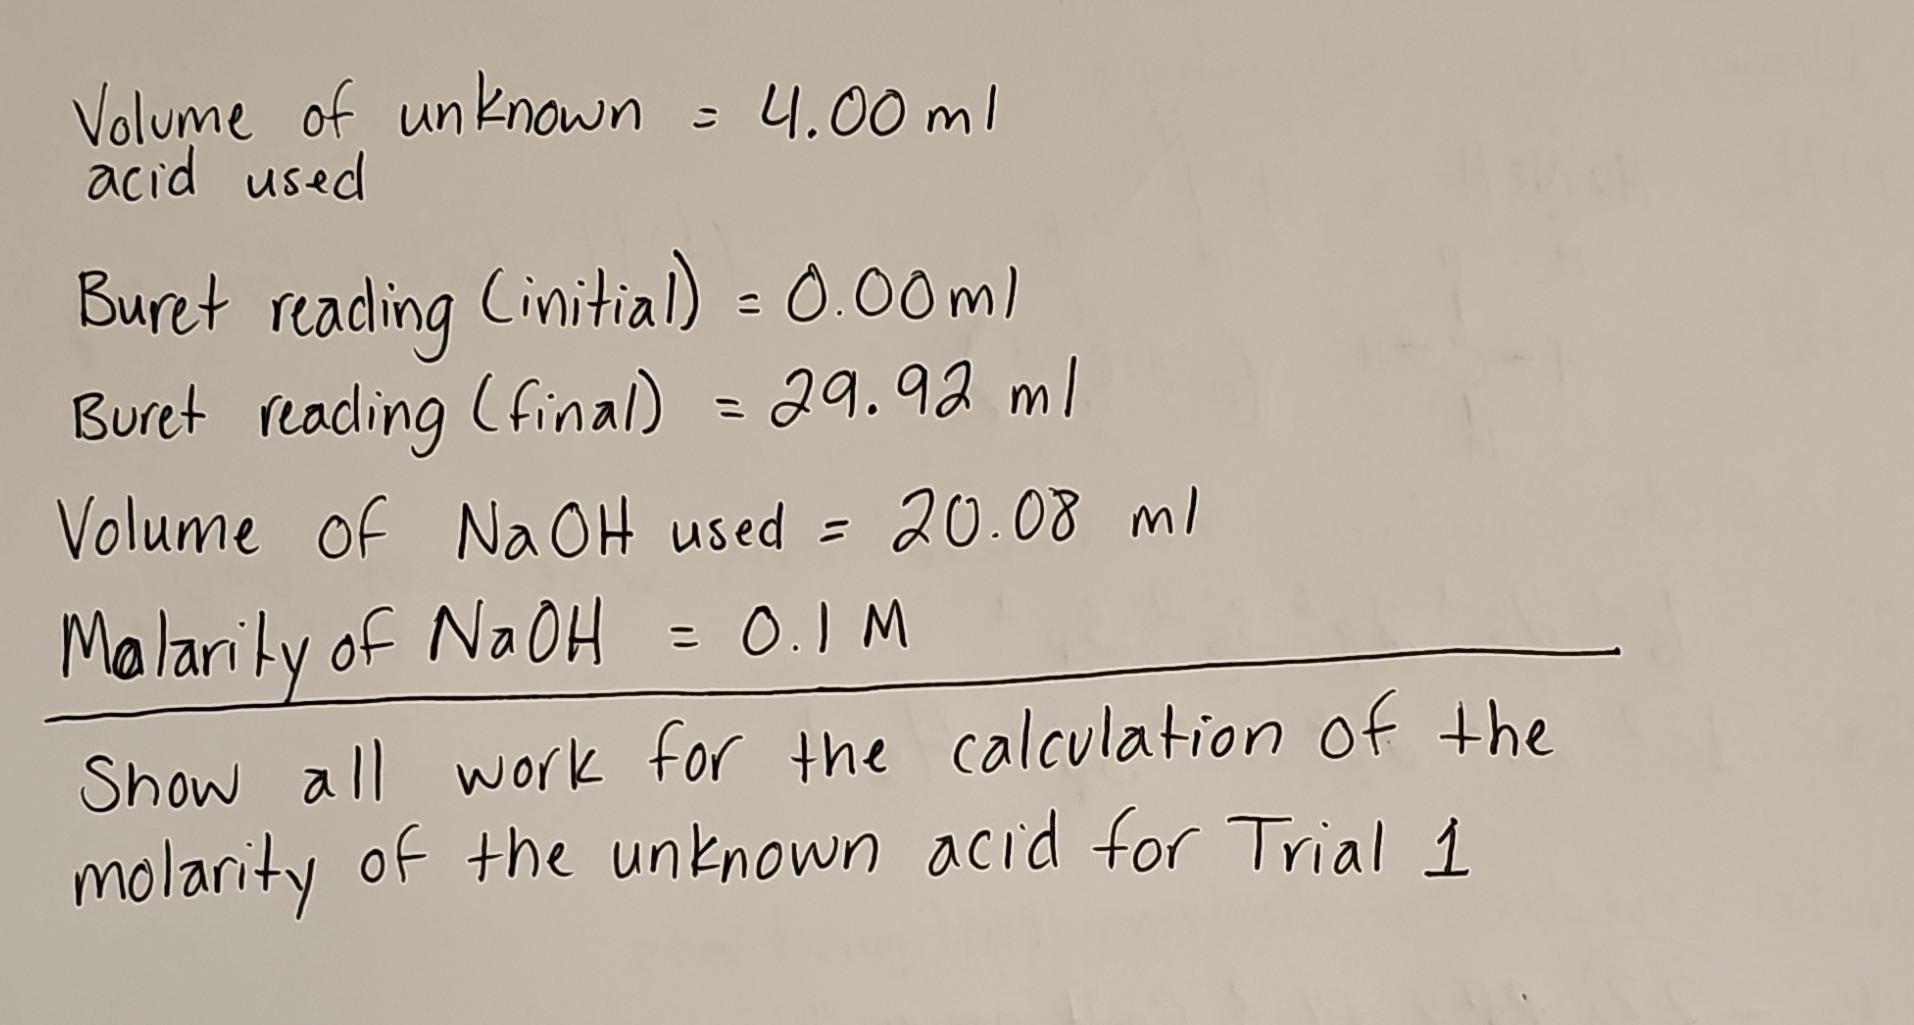 Volume of unknown = 4.00 ml
acid used
Buret reading (initial) = 0.00 ml
Buret reading (final) = 29.92 ml
Volume of NaOH used = 20.08 ml
Malarity of NaOH = 0.1 M
Show all work for the calculation of the
molarity of the unknown acid for Trial 1